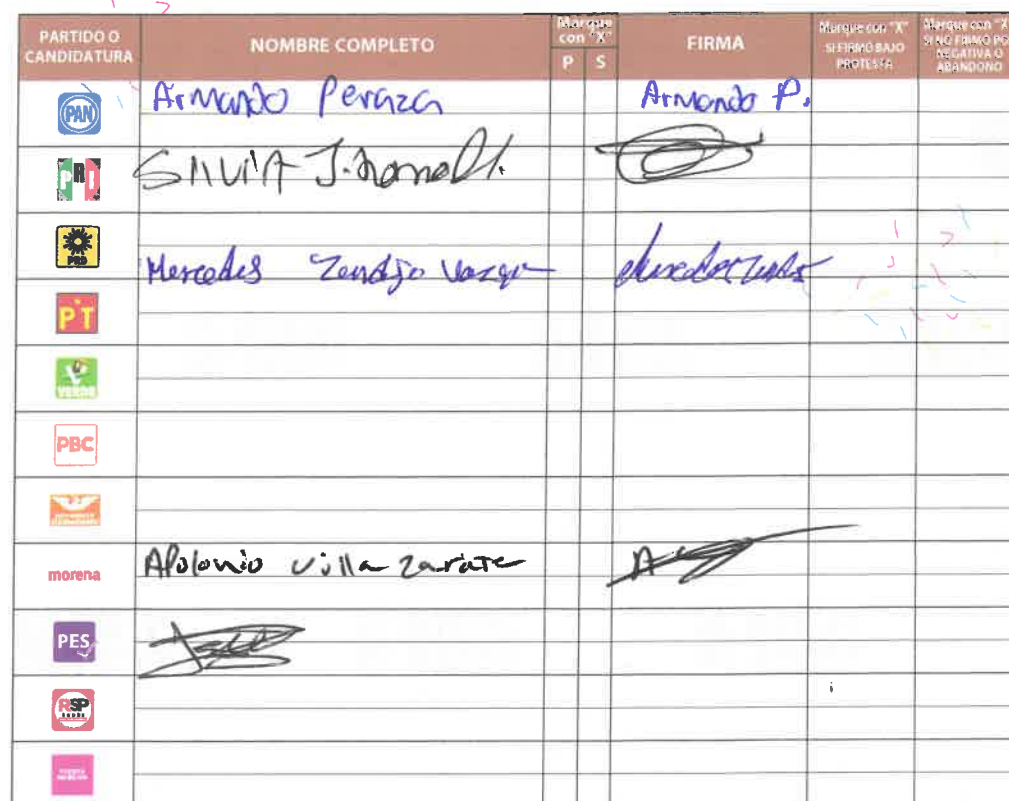 PARTIDO O CANDIDATURA
NOMBRE COMPLETO
Marque con "X"
P S
FIRMA
Marque con "X" SI FIRMÓ BAJO PROTESTA
Marque con "X" SI NO FIRMÓ POR NEGATIVA O ABANDONO
PAN Armando Peraza Armando P.
PRI SilviA J.
PRD Mercedes
PT
VERDE
PBC
morena Apolonio Villa Zarate
PES
RSP